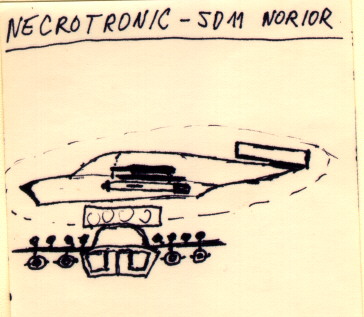 NECROTRONIC - SD11 NORIOR